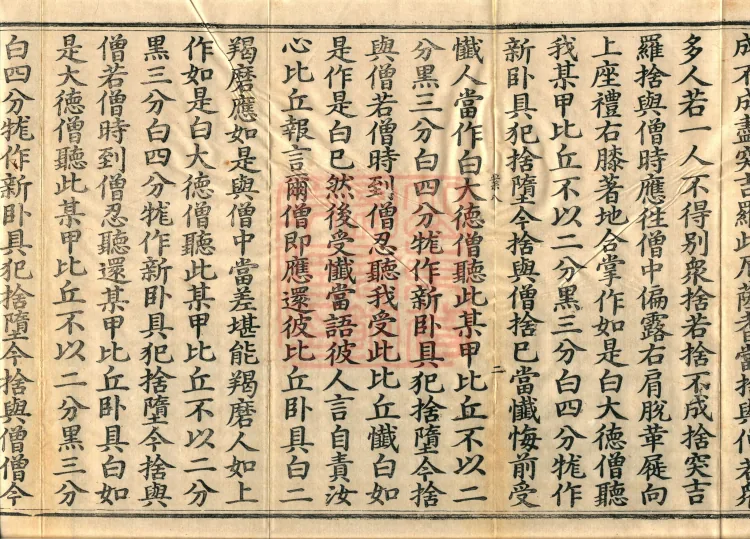 成不成盡突吉羅此尼薩耆當捨與僧若衆
多人若一人不得別衆捨若捨不成捨突吉
羅捨與僧時應往僧中偏露右肩脫革屣向
上座禮右膝著地合掌作如是白大德僧聽
我某甲比丘不以二分黑三分白四分牻作
新卧具犯捨墮今捨與僧捨已當懺悔前受
八 二
懺人當作白大德僧聽此某甲比丘不以二
分黑三分白四分牻作新卧具犯捨墮今捨
與僧若僧時到僧忍聽我受此比丘懺白如
是作是白已然後受懺當語彼人言自責汝
心比丘報言爾僧即應還彼比丘卧具白二
羯磨應如是與僧中當差堪能羯磨人如上
作如是白大德僧聽此某甲比丘不以二分
黑三分白四分牻作新卧具犯捨墮今捨與
僧若僧時到僧忍聽還某甲比丘卧具白如
是大德僧聽此某甲比丘不以二分黑三分
白四分牻作新卧具犯捨墮今捨與僧僧今